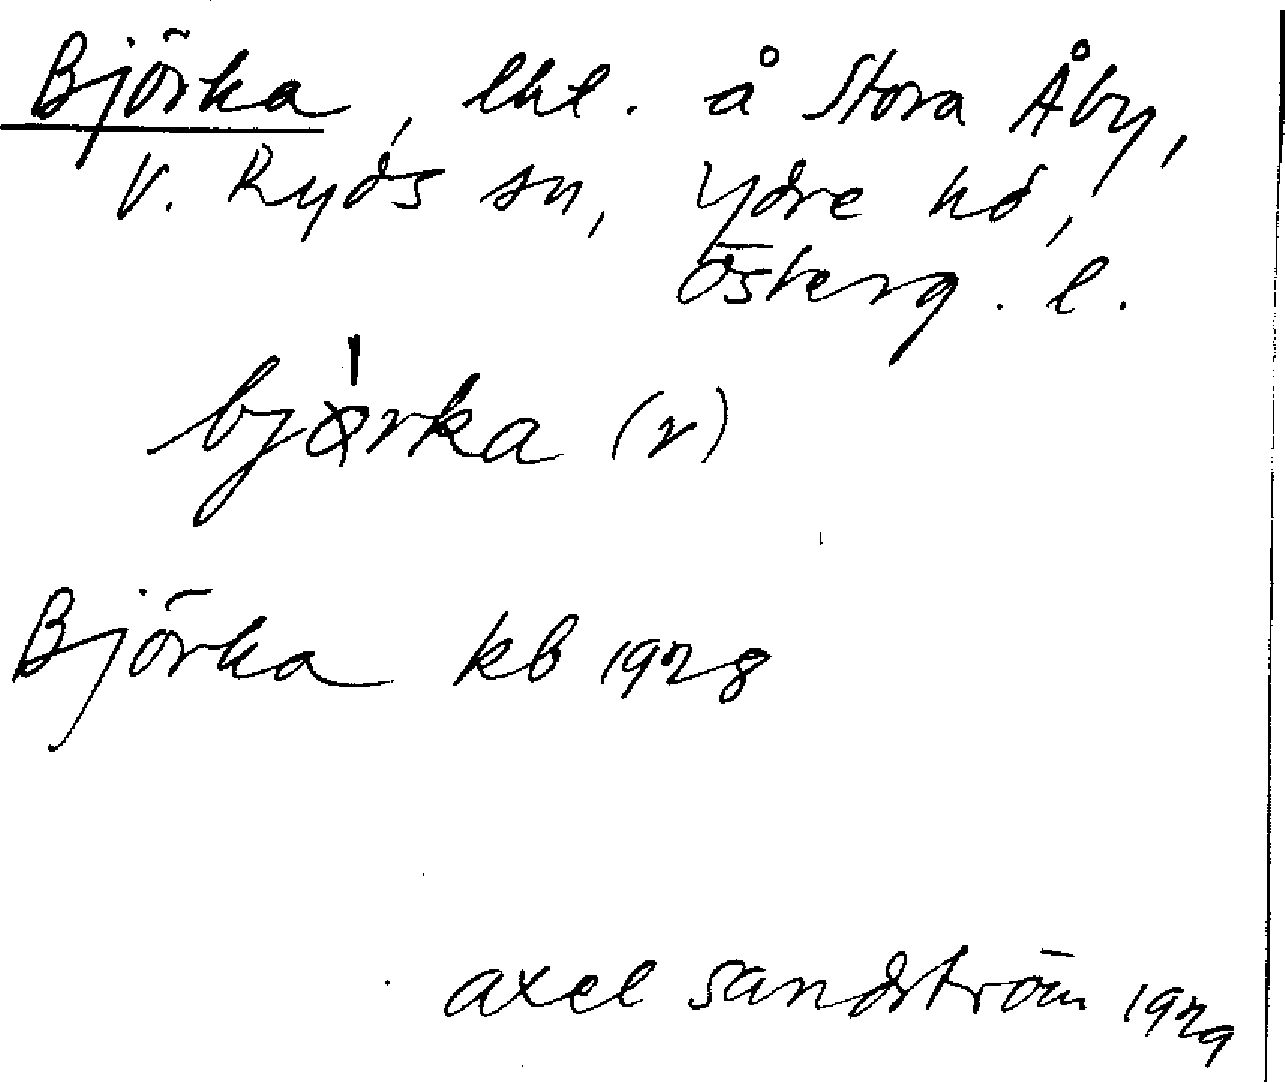 Björka, lht. å Stora Åby,
V. Ryds sn, Ydre hd,
Österg. l.
bjørka (r)
Björka kb 1928
axel sandström 1929